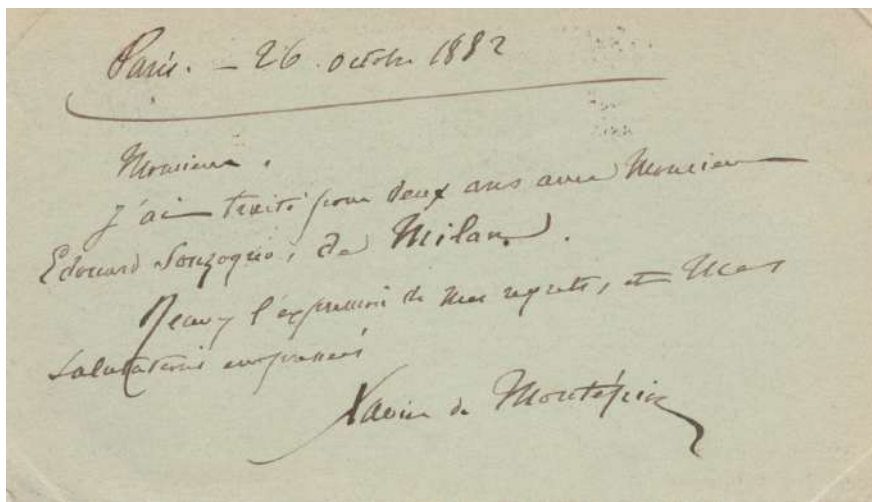 Paris. — 26 octobre 1882
Monsieur.
J'ai traité pour deux ans avec Monsieur
Edouard Sonzogno, de Milan.
Recevez l'expression de mes regrets, et mes
salutations empressées
Xavier de Montépin